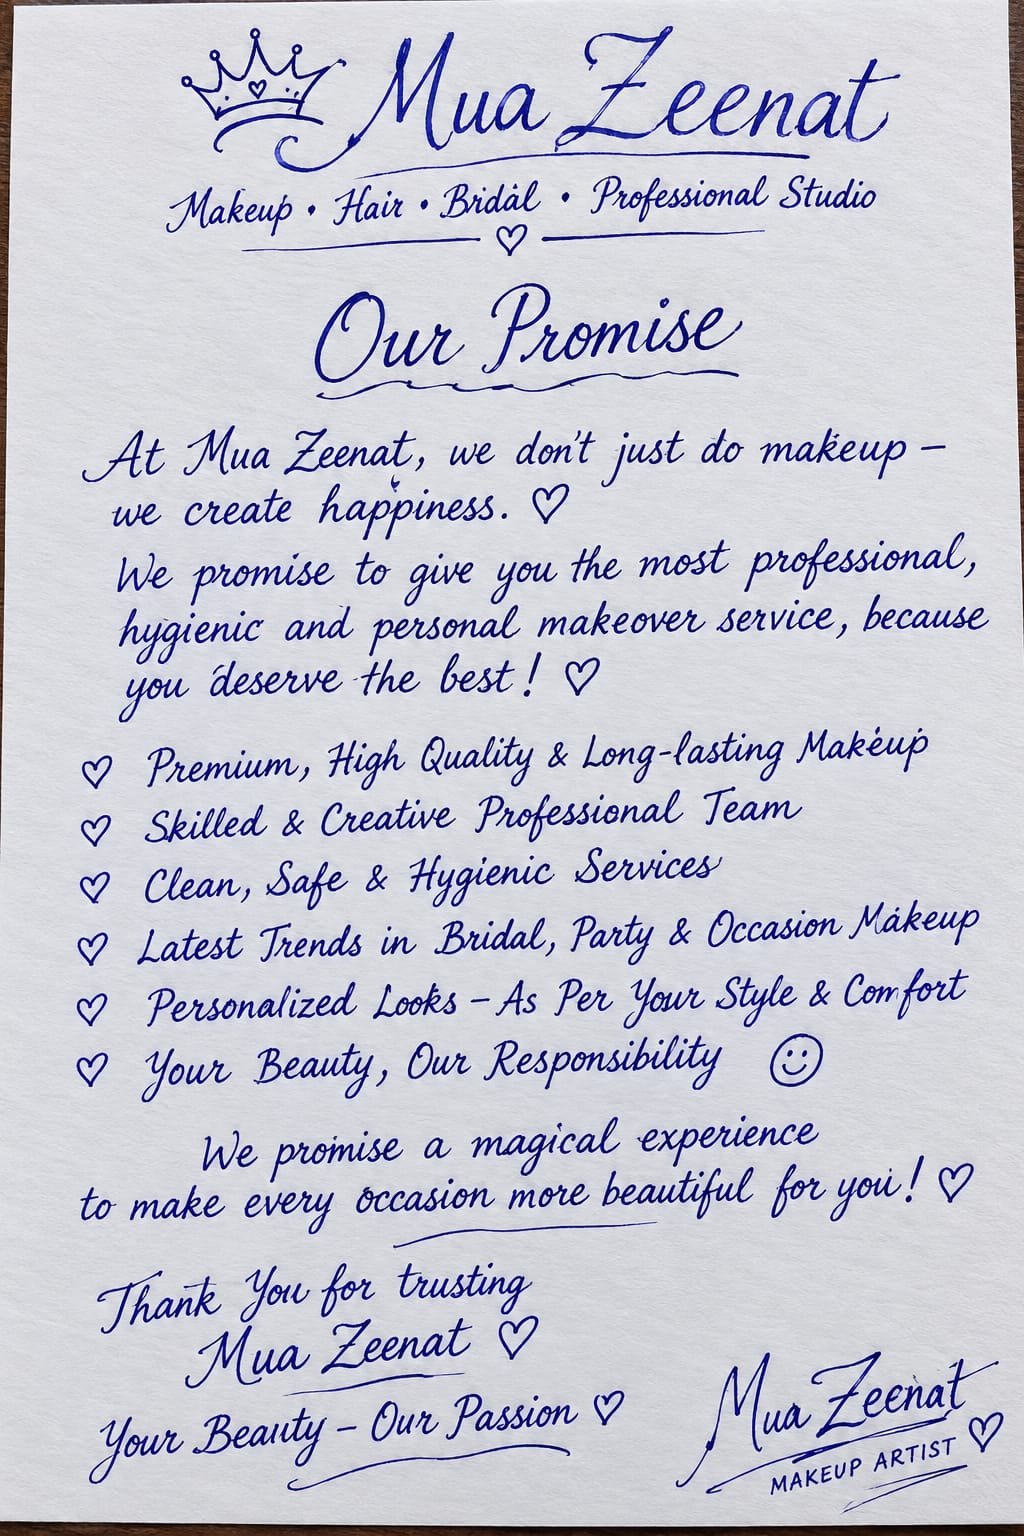 Mua Zeenat
Makeup • Hair • Bridal • Professional Studio
Our Promise
At Mua Zeenat, we don't just do makeup –
we create happiness. ♡
We promise to give you the most professional,
hygienic and personal makeover service, because
you deserve the best! ♡
♡ Premium, High Quality & Long-lasting Makeup
♡ Skilled & Creative Professional Team
♡ Clean, Safe & Hygienic Services
♡ Latest Trends in Bridal, Party & Occasion Makeup
♡ Personalized Looks – As Per Your Style & Comfort
♡ Your Beauty, Our Responsibility ☺
We promise a magical experience
to make every occasion more beautiful for you! ♡
Thank You for trusting
Mua Zeenat ♡
Your Beauty – Our Passion ♡
Mua Zeenat
MAKEUP ARTIST ♡